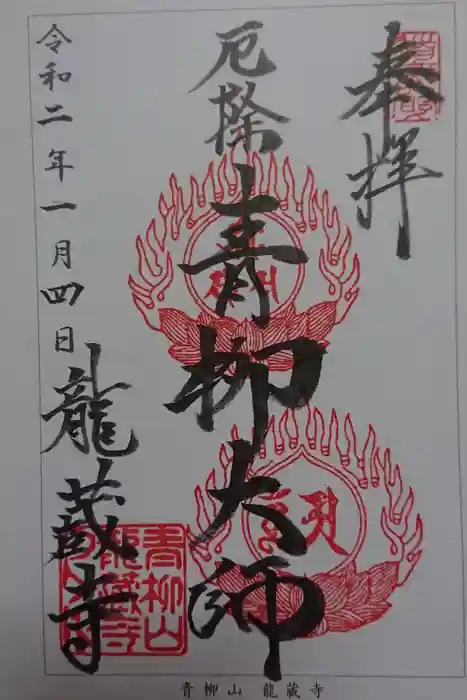 奉拝
厄除
青柳大師
令和二年一月四日
龍蔵寺
青柳山
龍蔵寺
青柳山 龍蔵寺